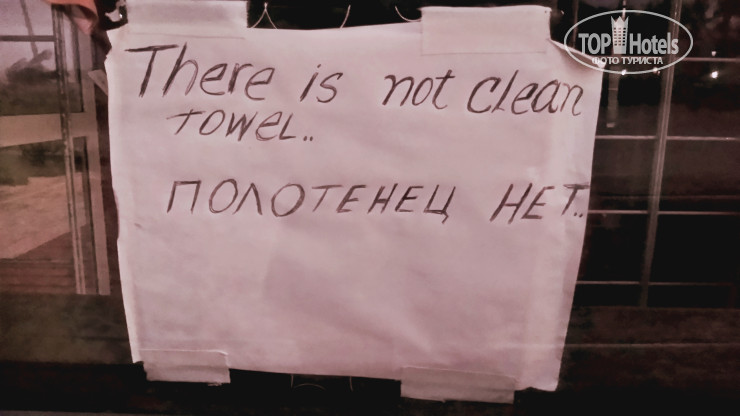 TOP Hotels
ФОТО ТУРИСТА
There is not clean
TOWEL..
ПОЛОТЕНЕЦ НЕТ..